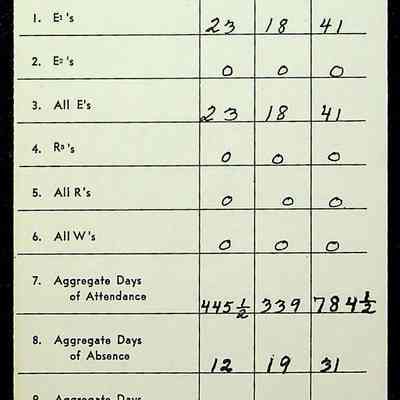 1. E¹'s 23 18 41
2. E²'s 0 0 0
3. All E's 23 18 41
4. R³'s 0 0 0
5. All R's 0 0 0
6. All W's 0 0 0
7. Aggregate Days
of Attendance 445 1/2 339 784 1/2
8. Aggregate Days
of Absence 12 19 31
9. Aggregate Days